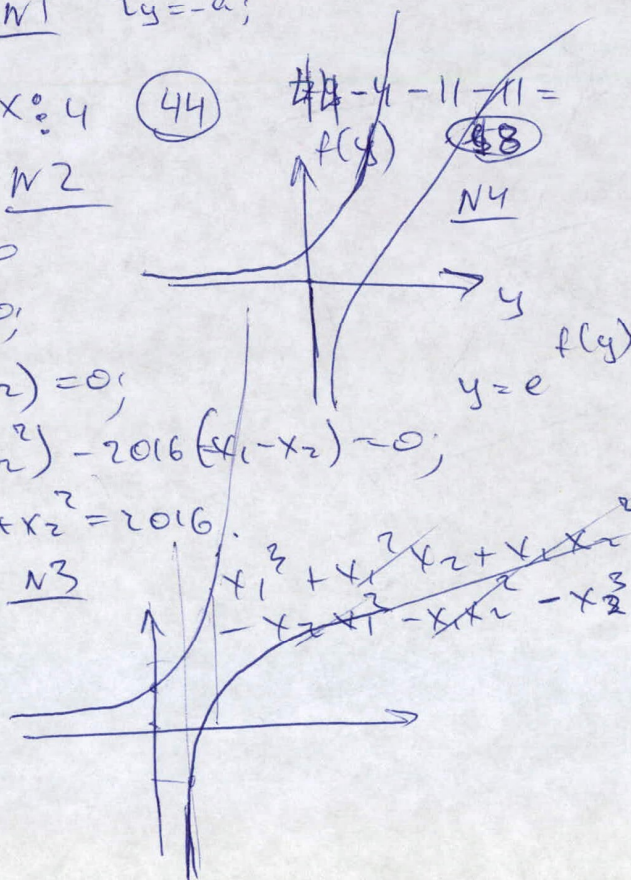 N1 y=-a;
x⋮4 44 -4-11-11=
f(y) 8
N2 N4
0
y
0;
f(y)
2) =0; y=e
2²) -2016(x₁-x₂)=0;
+x₂²=2016.
N3 x₁³+x₁²x₂+x₁x₂²
-x₂x₁²-x₁x₂²-x₂³